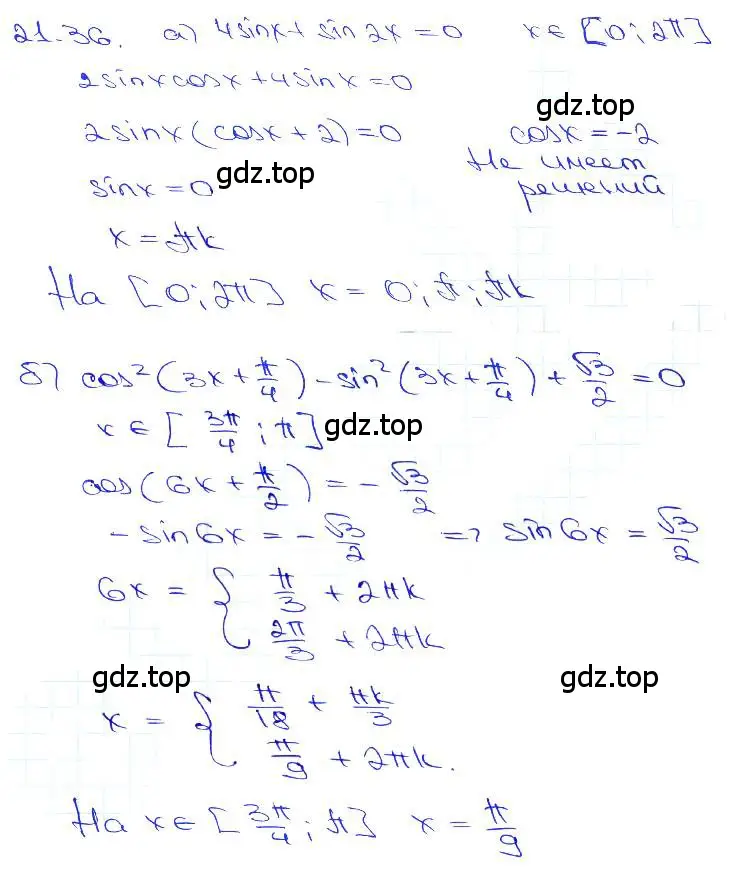 21.36. а) 4sinx + sin 2x = 0 x ∈ [0; 2π]
2sinxcosx + 4sinx = 0
gdz.top
2sinx(cosx + 2) = 0 cosx = -2
gdz.top
Не имеет
sinx = 0 решений
x = πk
На [0; 2π] x = 0; π; πk
б) cos²(3x + π/4) - sin²(3x + π/4) + √3/2 = 0
x ∈ [3π/4; π] gdz.top
cos(6x + π/2) = -√3/2
-sin6x = -√3/2 => sin6x = √3/2
6x = { π/3 + 2πk
2π/3 + 2πk
gdz.top gdz.top
x = { π/18 + πk/3
π/9 + 2πk.
На x ∈ [3π/4; π] x = π/9